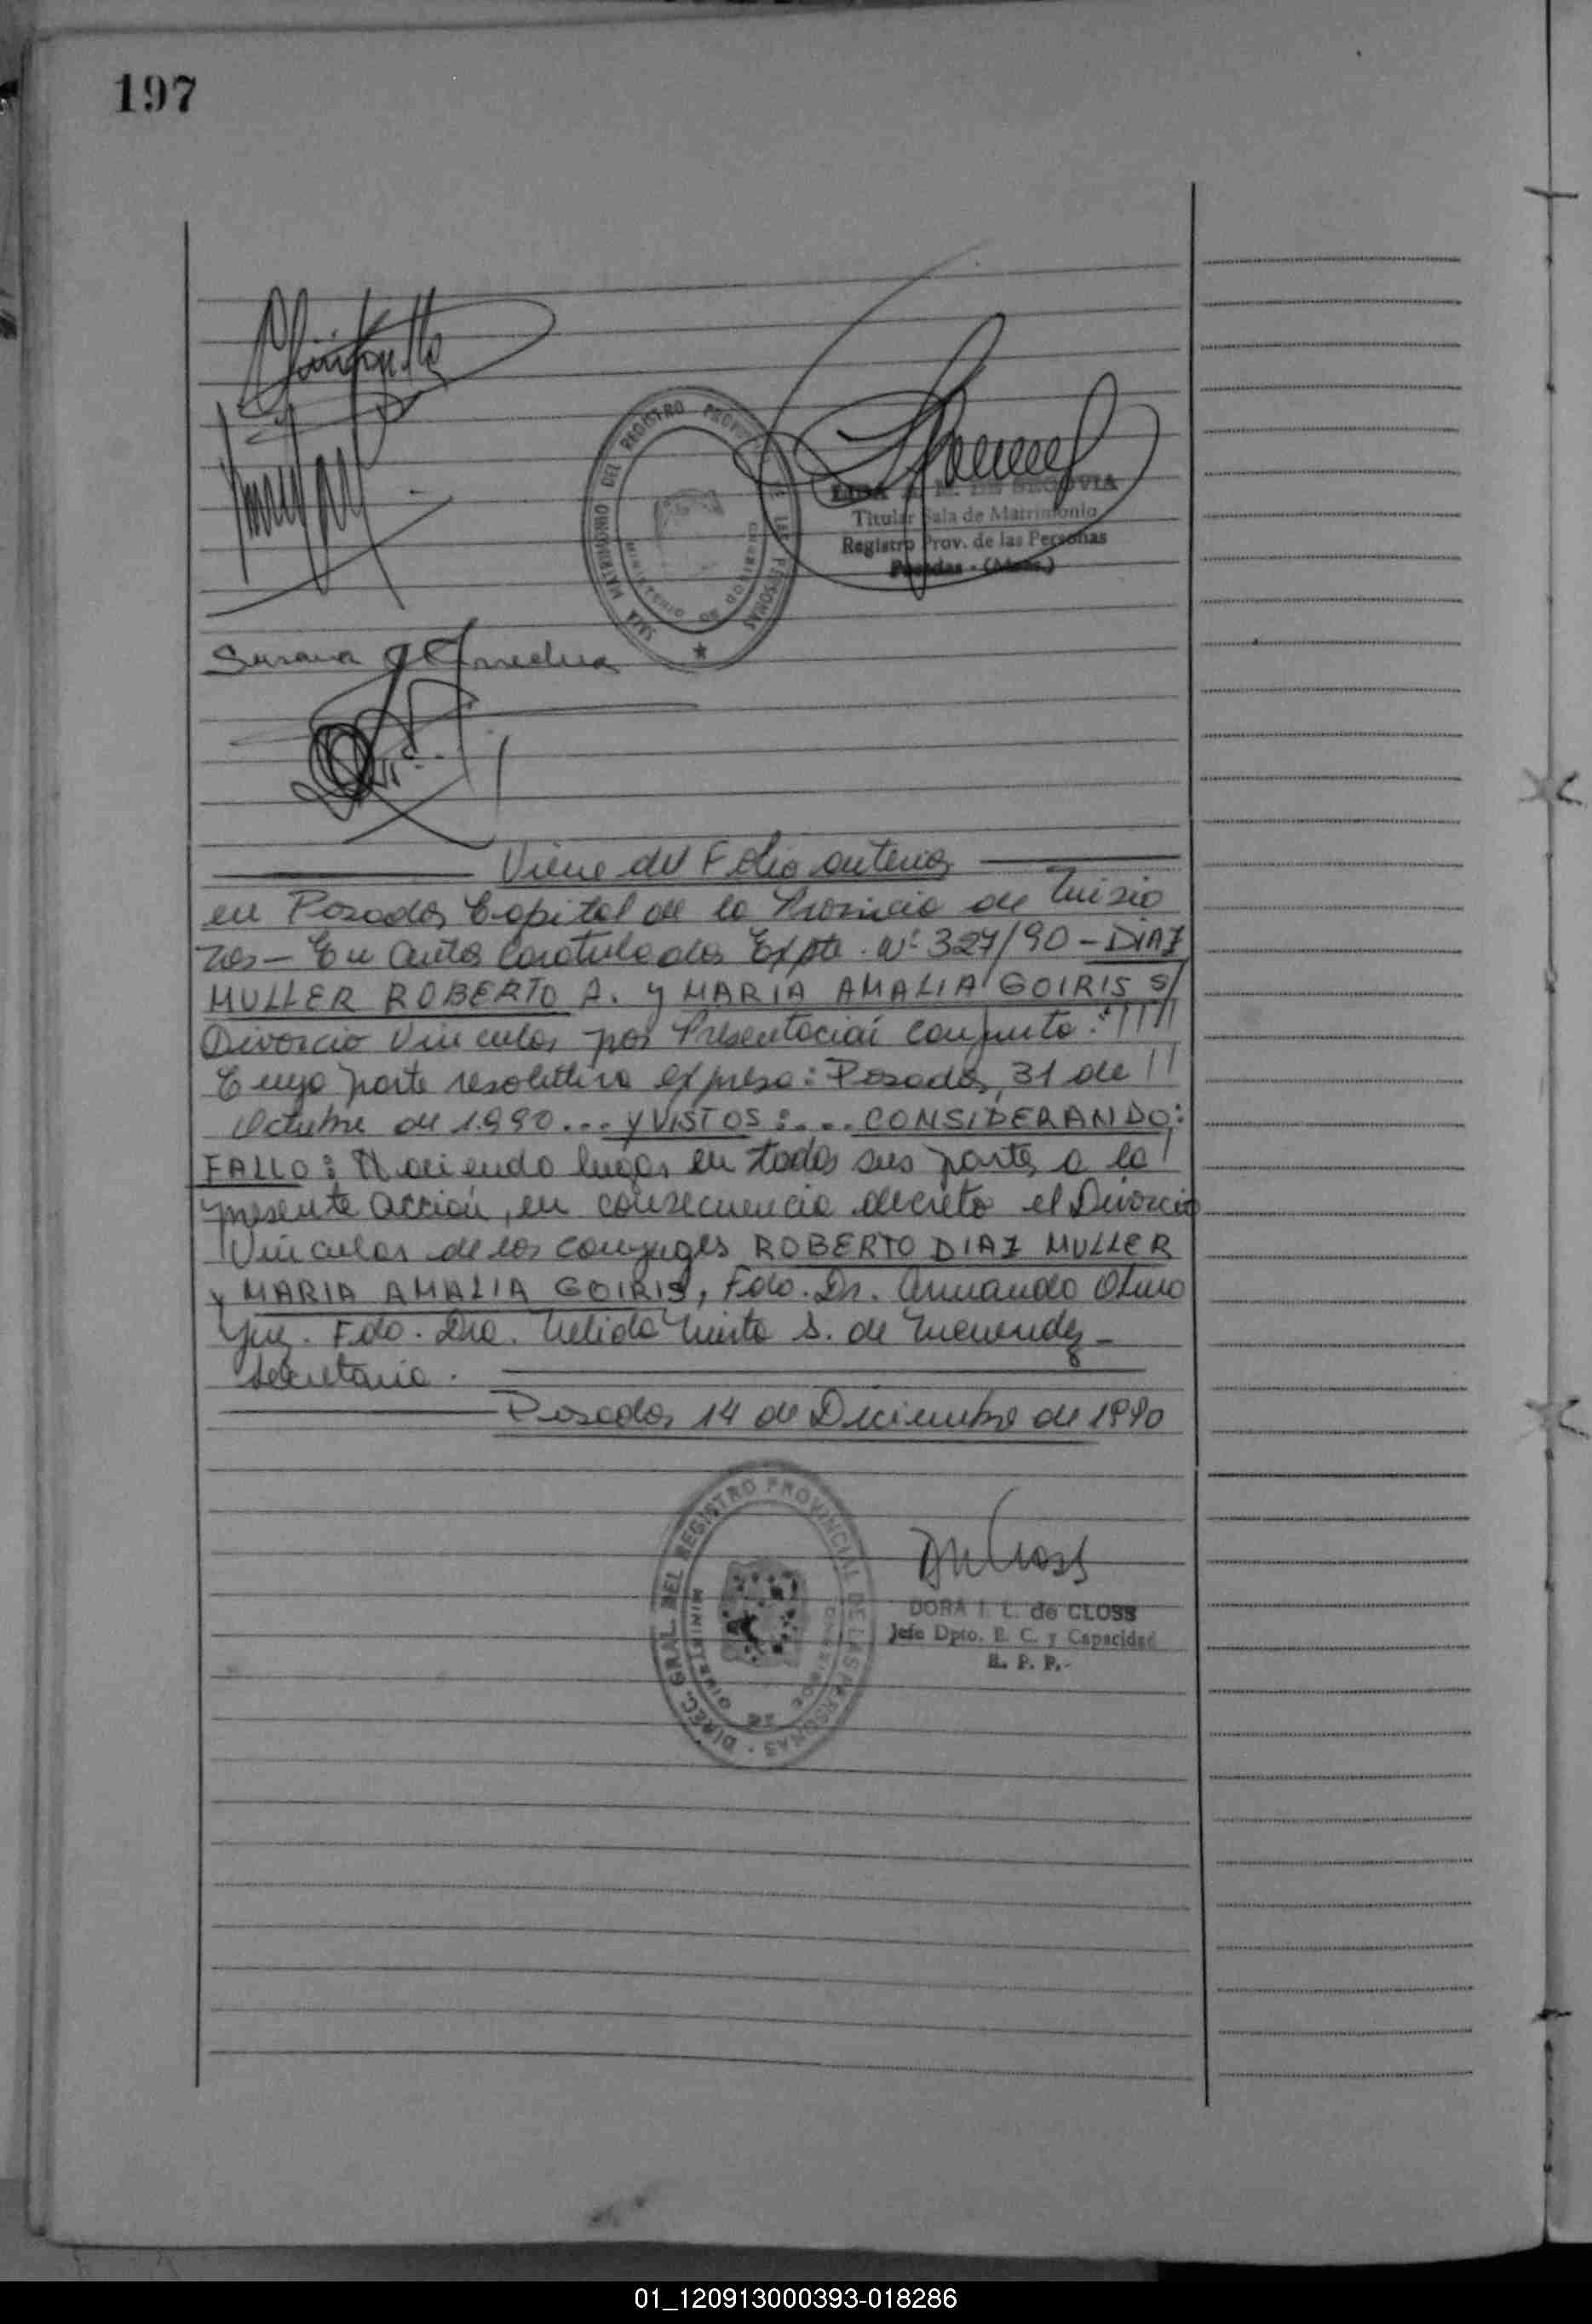 197
SALA MATRIMONIO DEL REGISTRO PROVINCIAL DE LAS PERSONAS
MINISTERIO DE GOBIERNO
M. DE SEGOVIA
Titular Sala de Matrimonio
Registro Prov. de las Personas
Posadas - (Mnes.)
Susana
Viene del Folio anterior
en Posadas Capital de la Provincia de Misio
nes - En autos Caratulados Expte. Nº 327/90 - DIAZ
MULLER ROBERTO A. y MARIA AMALIA GOIRIS S/
Divorcio Vincular por Presentación conjunta:"////
Cuya parte resolutiva expresa: Posadas, 31 de //
Octubre de 1.990... Y VISTOS:... CONSIDERANDO:
FALLO: Haciendo lugar en todas sus partes a la
presente acción, en consecuencia decreto el Divorcio
Vincular de los conyuges ROBERTO DIAZ MULLER
y MARIA AMALIA GOIRIS, Fdo. Dr. Armando Olmo
Juez. Fdo. Dra. Nelida Mirta S. de Menendez -
Secretaria.
Posadas 14 de Diciembre de 1990
DIREC. GRAL. DEL REGISTRO PROVINCIAL DE LAS PERSONAS
MINISTERIO DE GOBIERNO
DORA I. L. de CLOSS
Jefe Dpto. E. C. y Capacidad
R. P. P.-
01_120913000393-018286